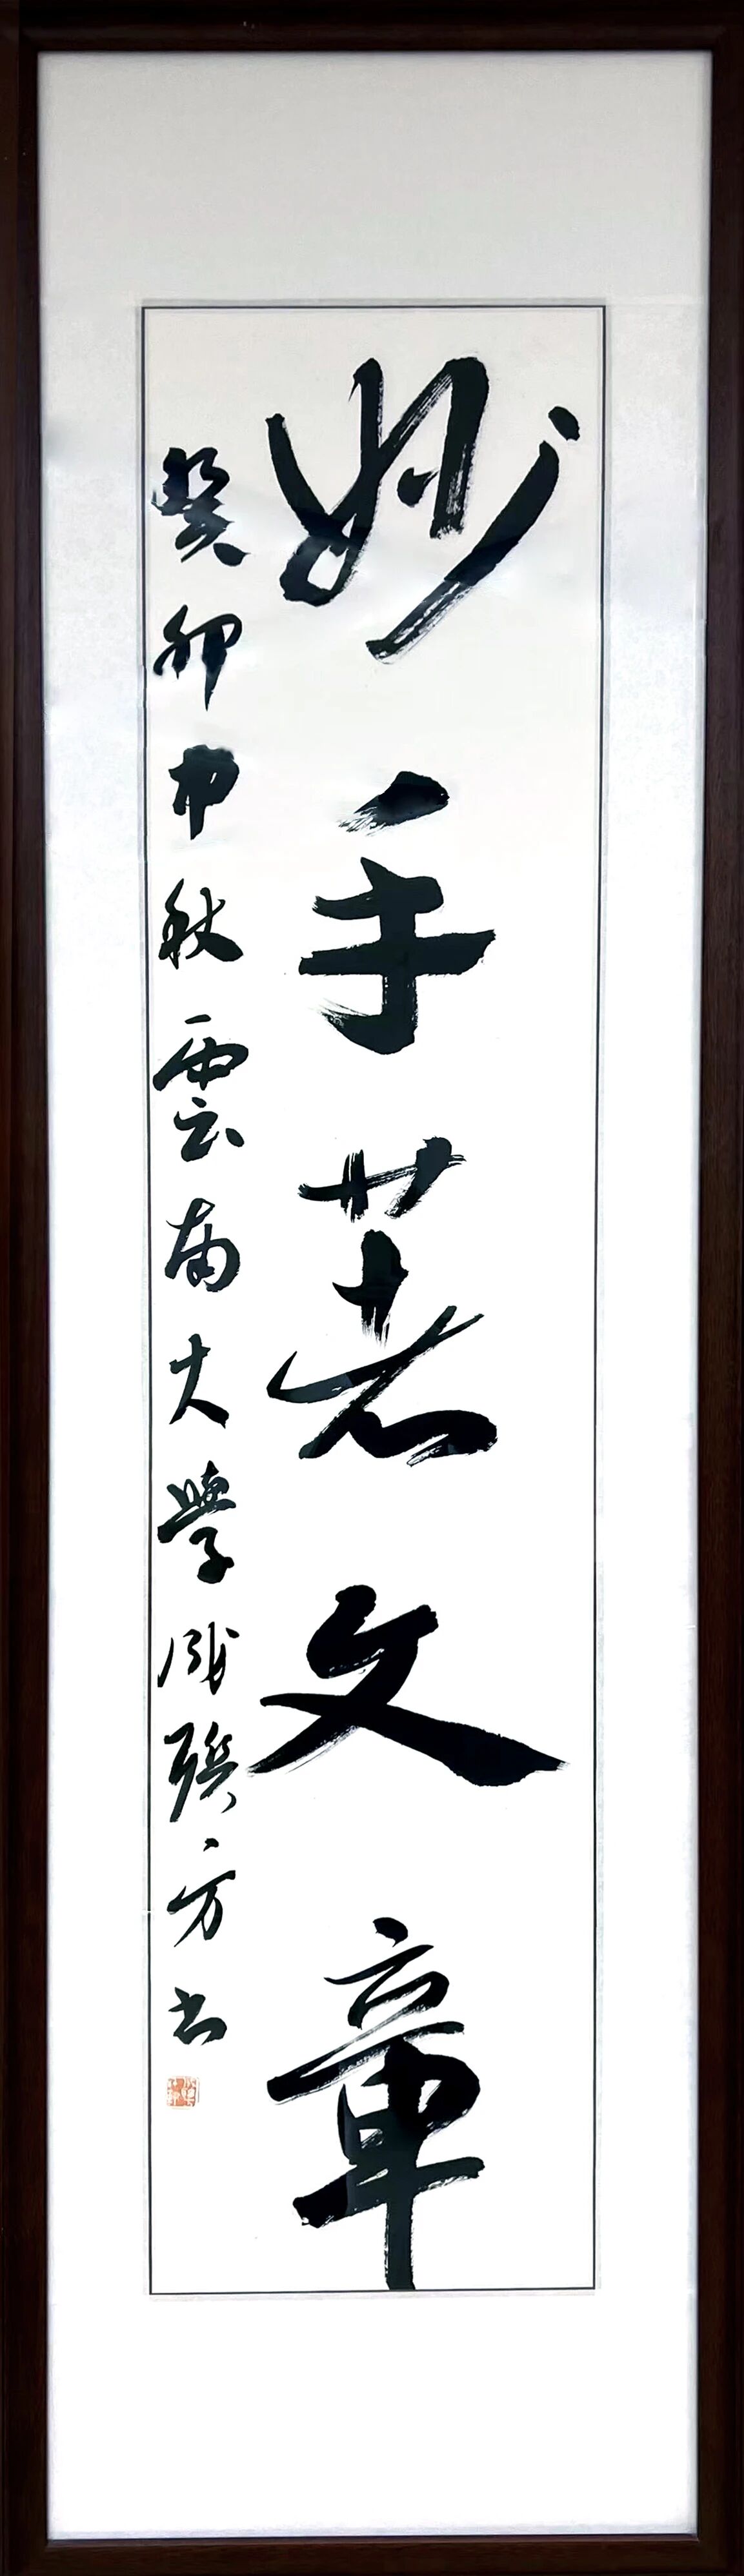 妙手著文章
癸卯中秋雲南大學成联方书